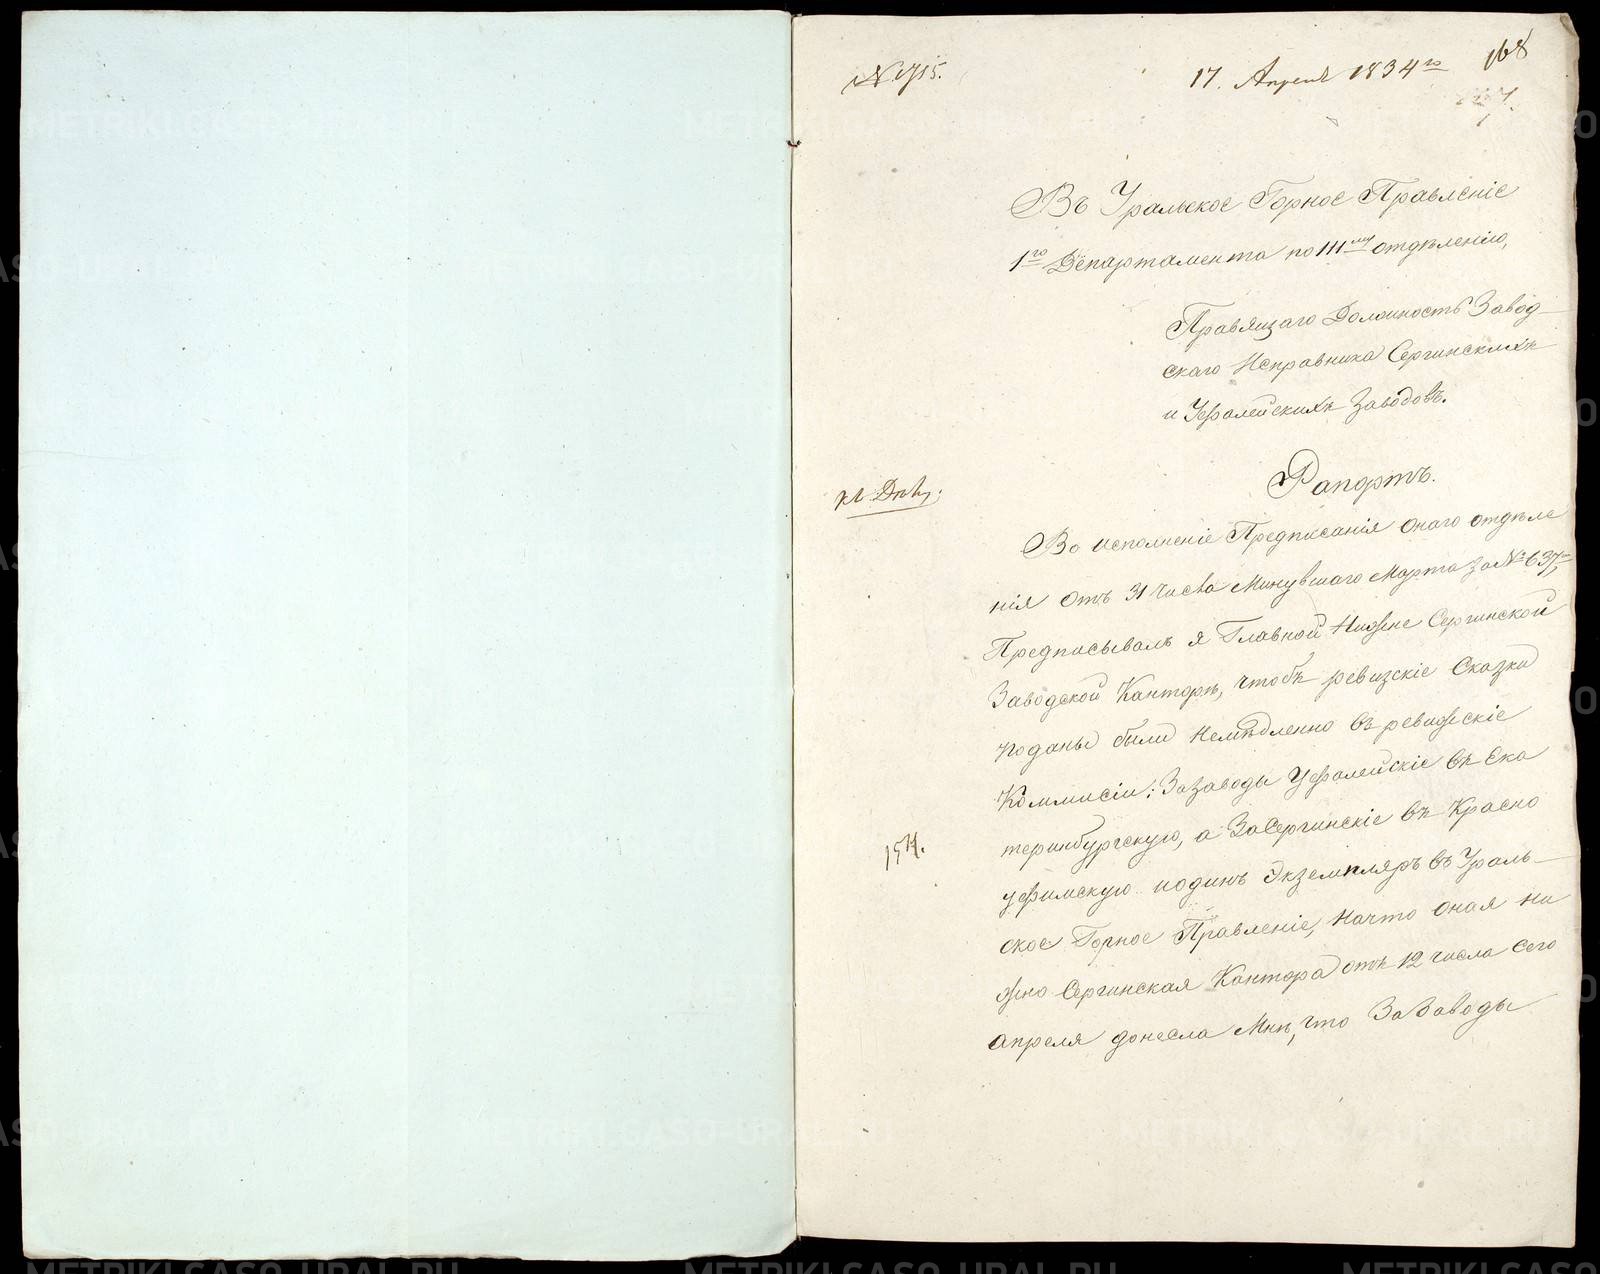 № 1715.
17. Апреля 1834го
168
Въ Уральское Горное Правленіе
1го Департамента по III му отдѣленію,
Правящаго Должность Завод
скаго Исправника Сергинскихъ
и Уфалейскихъ Заводовъ.
Рапортъ.
Во исполненіе Предписанія онаго отдѣле
нія отъ 31 числа Минувшаго Марта за № 637,
Предписывалъ я Главной Нижне Сергинской
Заводской Канторѣ, чтобъ ревизскіе Сказки
поданы были немѣдленно въ ревижскіе
Коммисіи; За Заводы Уфалейскіе въ Ека
теринбургскую, а За Сергинскіе въ Красно
уфимскую и одинъ Экземпляръ въ Ураль
ское Горное Правленіе, на что оная Ни
жно Сергинская Кантора отъ 12 числа сего
апреля донесла Мнѣ, что За Заводы
METRIKI.GASO-URAL.RU